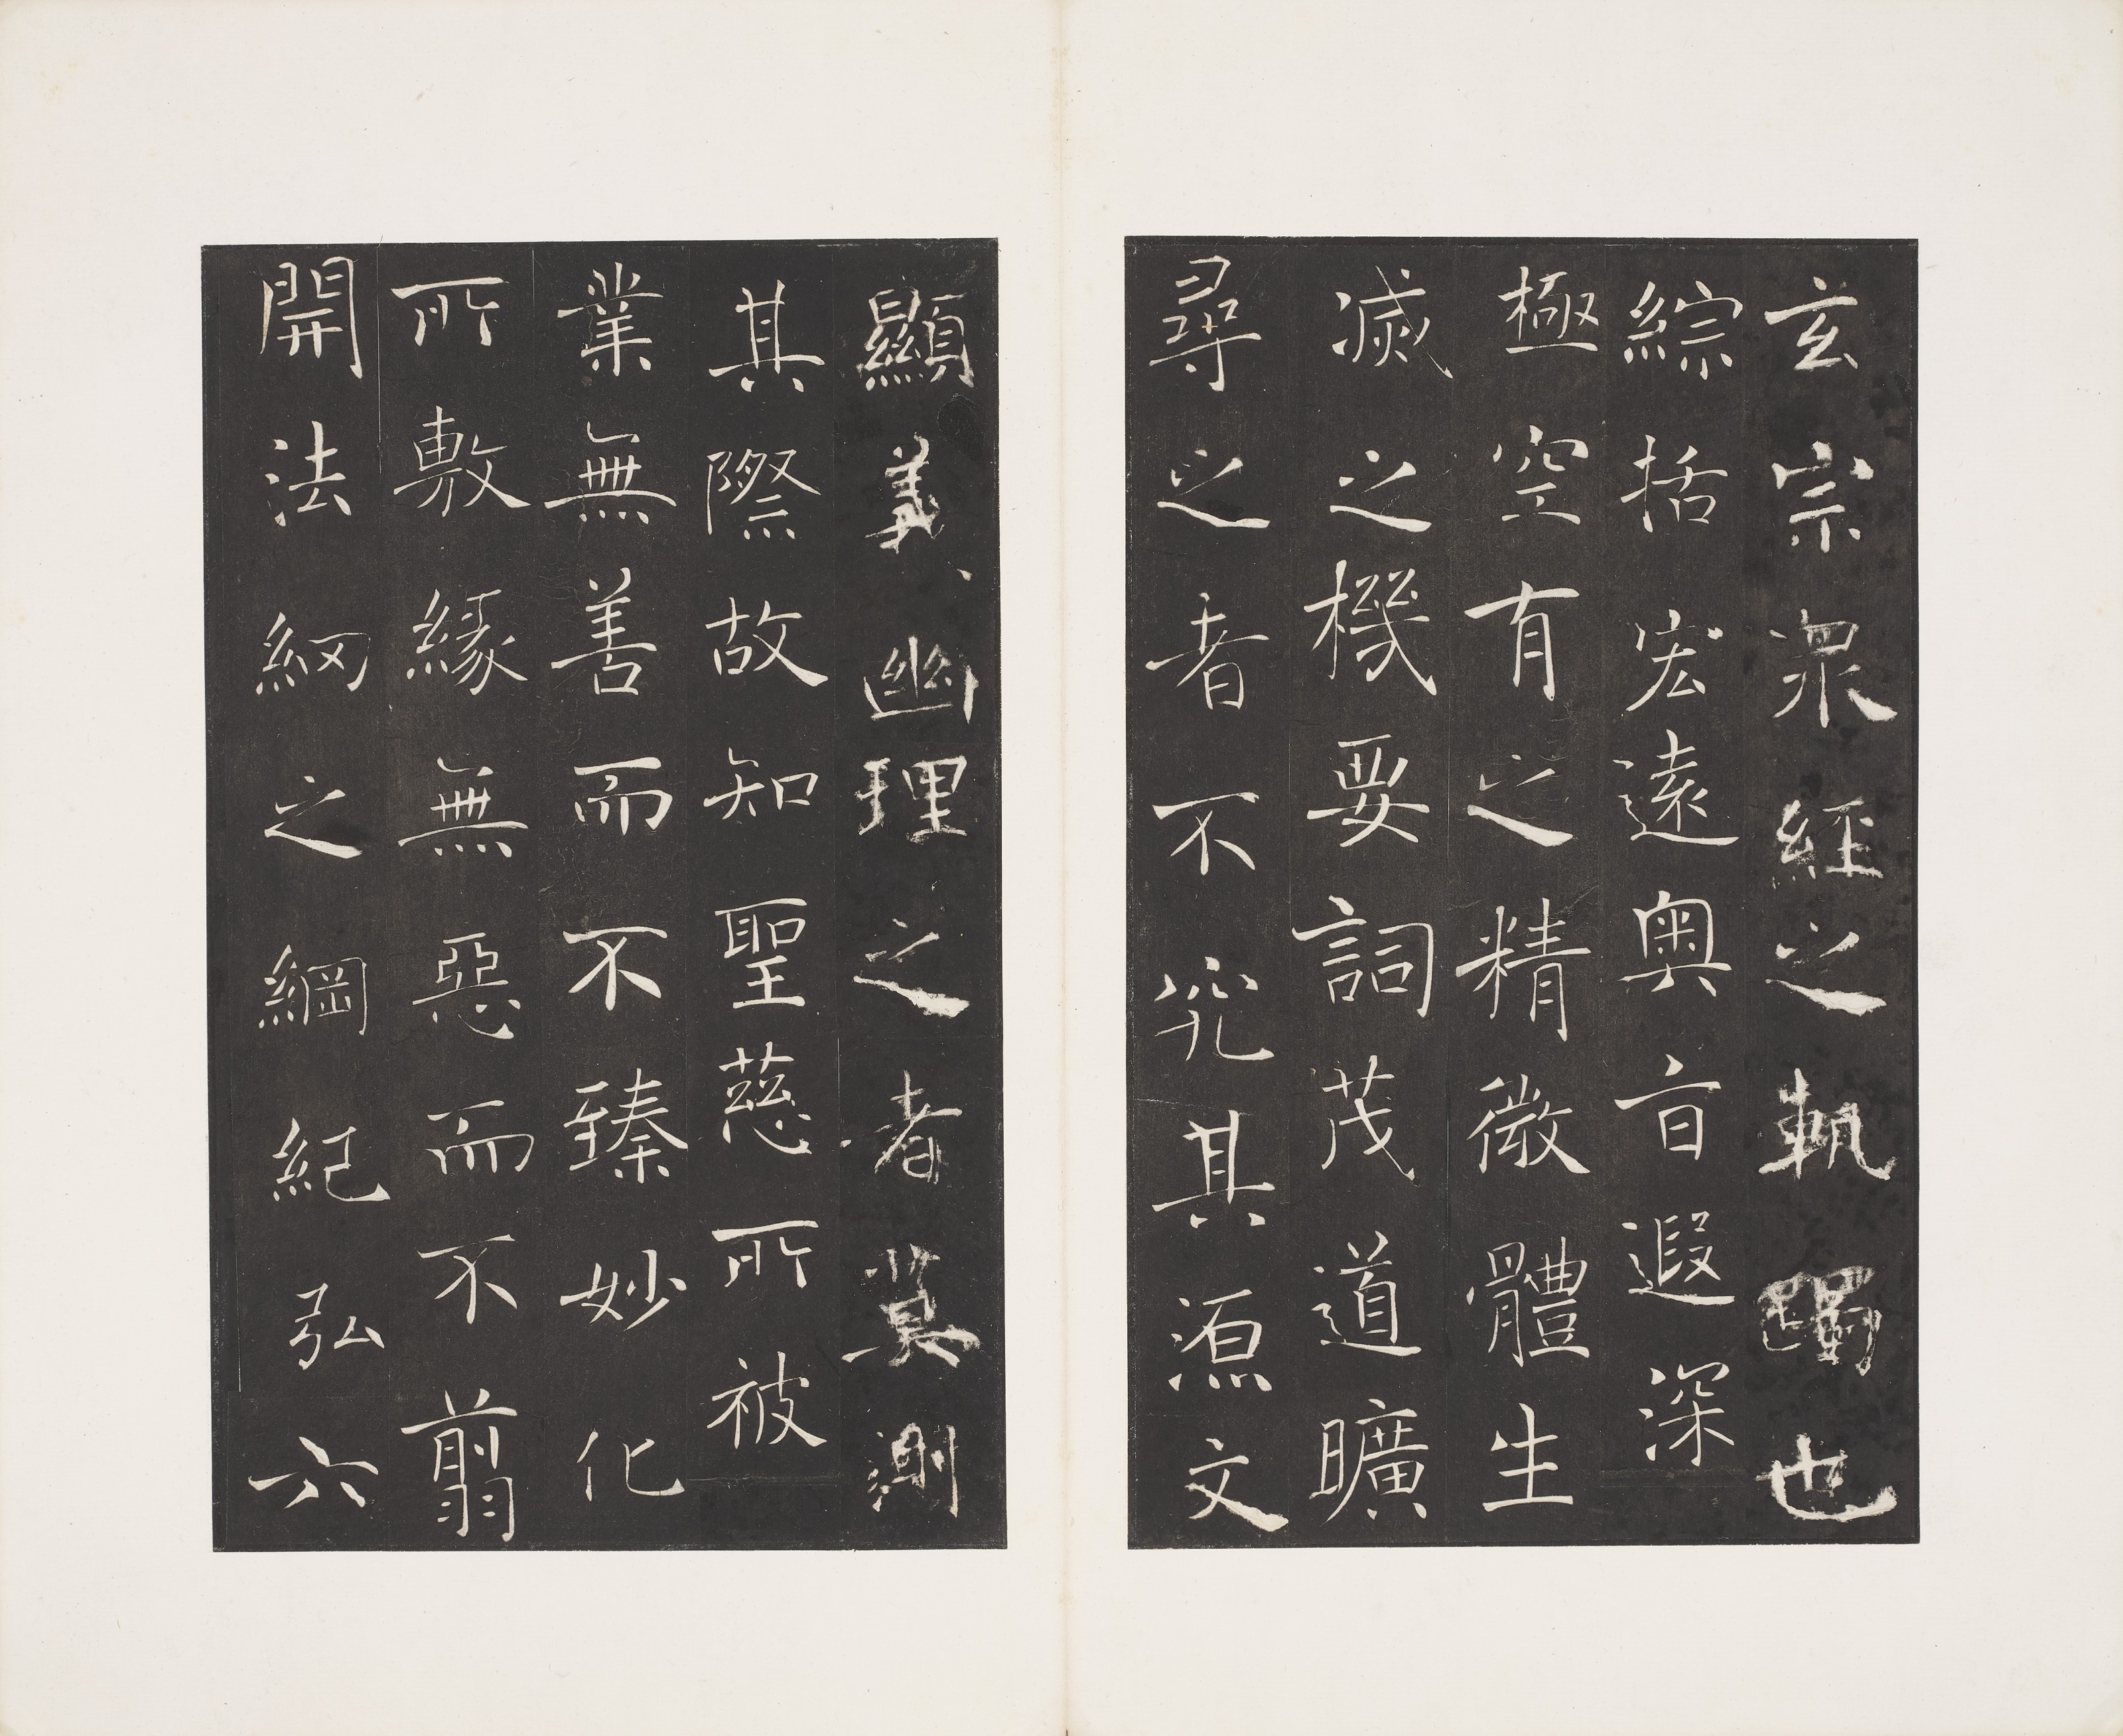 玄宗衆經之軌躅也
綜括宏遠奧旨遐深
極空有之精微體生
滅之機要詞茂道曠
尋之者不究其源文
顯義幽理之者莫測
其際故知聖慈所被
業無善而不臻妙化
所敷緣無惡而不翦
開法網之綱紀弘六